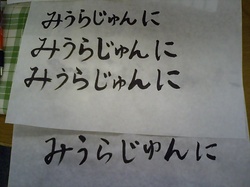 みうらじゅんに
みうらじゅんに
みうらじゅんに
みうらじゅんに